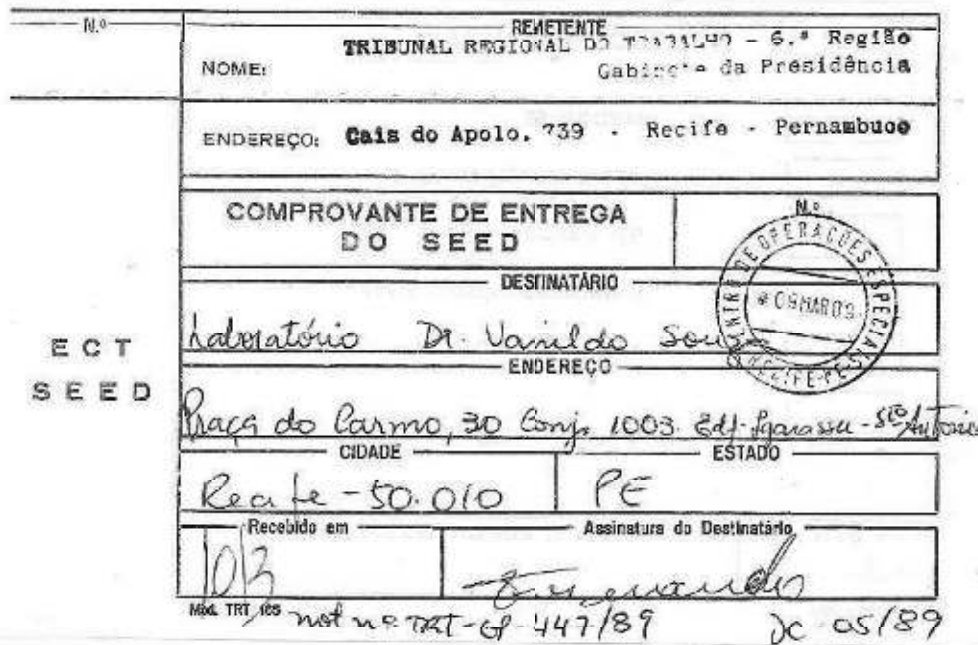 N.º
REMETENTE
TRIBUNAL REGIONAL DO TRABALHO - 6.ª Região
NOME:
Gabinete da Presidência
ENDEREÇO: Cais do Apolo, 739 - Recife - Pernambuco
COMPROVANTE DE ENTREGA
DO SEED
N.º
CENTRO DE OPERAÇÕES ESPECIAIS
09 MAR 89
RECIFE-PE
DESTINATÁRIO
Laboratório Dr. Vanildo
ENDEREÇO
ECT
SEED
Praça do Carmo, 30 Conj. 1003. Edf. Igarassu - Sto Antonio
CIDADE
ESTADO
Recife - 50.010
PE
Recebido em
Assinatura do Destinatário
10/3
Mod. TRT 165
not nº TRT-GP-447/89
DC-05/89